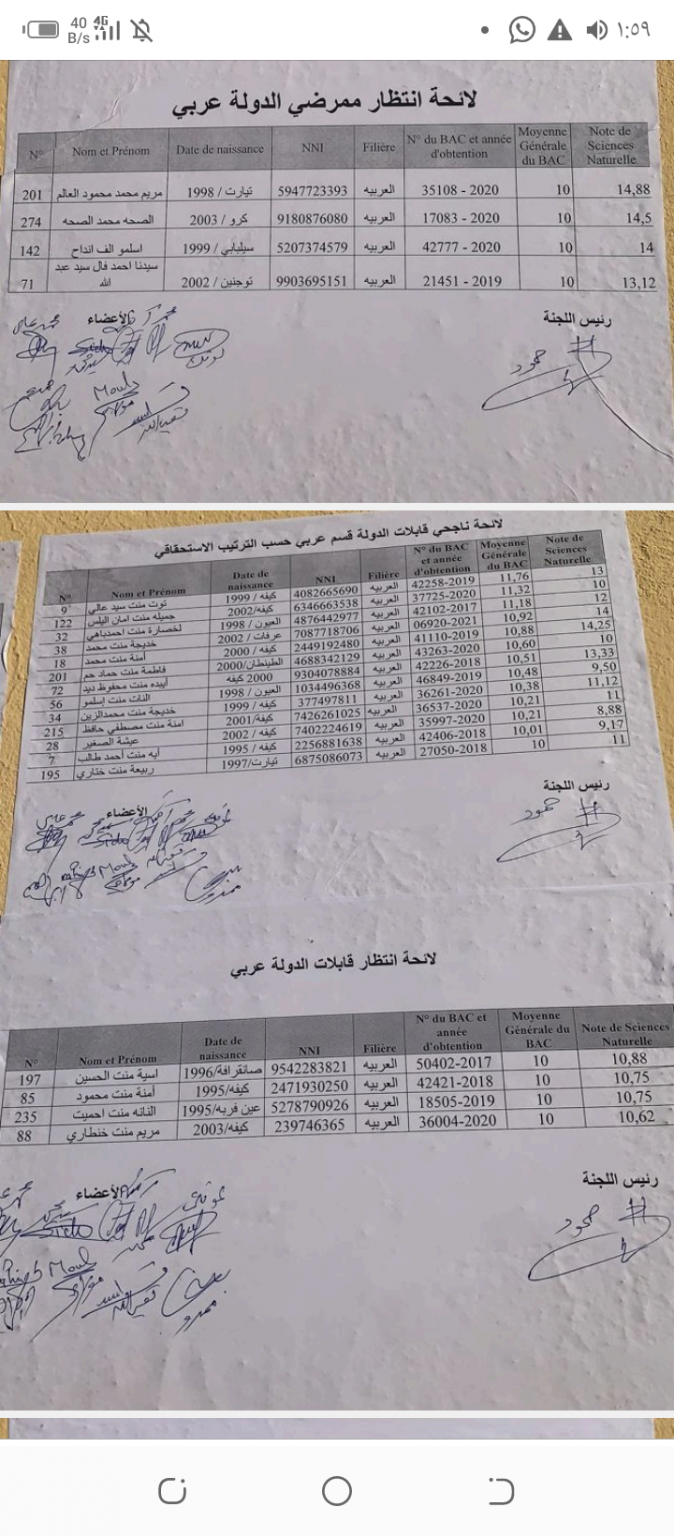 40 B/s 4G ١:٥٩
لائحة انتظار ممرضي الدولة عربي
N° Nom et Prénom Date de naissance NNI Filière N° du BAC et année d'obtention Moyenne Générale du BAC Note de Sciences Naturelle
201 مريم محمد محمود العالم تيارت / 1998 5947723393 العربيه 35108 - 2020 10 14,88
274 الصحه محمد الصحه كرو / 2003 9180876080 العربيه 17083 - 2020 10 14,5
142 اسلمو الف انداح سيلبابي / 1999 5207374579 العربيه 42777 - 2020 10 14
71 سيدنا احمد فال سيد عبد الله توجنين / 2002 9903695151 العربيه 21451 - 2019 10 13,12
رئيس اللجنة الأعضاء
حمود
Mould
لائحة ناجحي قابلات الدولة قسم عربي حسب الترتيب الاستحقاقي
N° Nom et Prénom Date de naissance NNI Filière N° du BAC et année d'obtention Moyenne Générale du BAC Note de Sciences Naturelle
9 توت منت سيد عالي كيفه / 1999 4082665690 العربيه 42258-2019 11,76 13
122 جميله منت امان اليلس كيفه/2002 6346663538 العربيه 37725-2020 11,32 10
32 لخصارة منت احمدباهي العيون / 1998 4876442977 العربيه 42102-2017 11,18 12
38 خديجة منت محمد عرفات / 2002 7087718706 العربيه 06920-2021 10,92 14
18 آمنة منت محمد كيفه / 2000 2449192480 العربيه 41110-2019 10,88 14,25
201 فاطمة منت حماد حم الطينطان/2000 4688342129 العربيه 43263-2020 10,60 10
72 آبيده منت محفوظ ديد 2000 كيفه 9304078884 العربيه 42226-2018 10,51 13,33
56 النات منت إسلمو العيون / 1998 1034496368 العربيه 46849-2019 10,48 9,50
34 خديجة منت محمدالزين كيفه / 1999 377497811 العربيه 36261-2020 10,38 11,12
215 امنة منت مصطفي حافظ كيفه/2001 7426261025 العربيه 36537-2020 10,21 11
28 عيشة الصغير كيفه / 2002 7402224619 العربيه 35997-2020 10,21 8,88
7 آيه منت أحمد طالب كيفه / 1995 2256881638 العربيه 42406-2018 10,01 9,17
195 ربيعة منت ختاري تيارت/1997 6875086073 العربيه 27050-2018 10 11
رئيس اللجنة الأعضاء
حمود
Mould
لائحة انتظار قابلات الدولة عربي
N° Nom et Prénom Date de naissance NNI Filière N° du BAC et année d'obtention Moyenne Générale du BAC Note de Sciences Naturelle
197 اسية منت الحسين صانقرافة/1996 9542283821 العربيه 50402-2017 10 10,88
85 آمنة منت محمود كيفه/1995 2471930250 العربيه 42421-2018 10 10,75
235 النانه منت احميت عين فربه/1995 5278790926 العربيه 18505-2019 10 10,75
88 مريم منت خنطاري كيفه/2003 239746365 العربيه 36004-2020 10 10,62
رئيس اللجنة الأعضاء
حمود
Mould